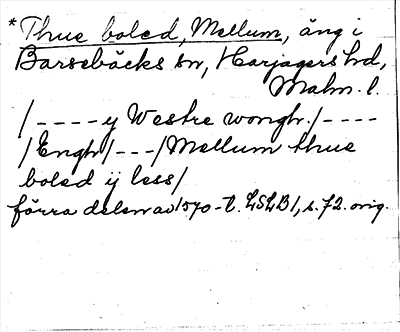 *Thue boled, Mellum, äng i
Barsebäcks sn, Harjagers hd,
Malm. l.
/----y Westre wongh./----
/Engh/---/Mellum thue
boled ij less/
förra delen av 1570-t. LSLB1, s. 72. orig.